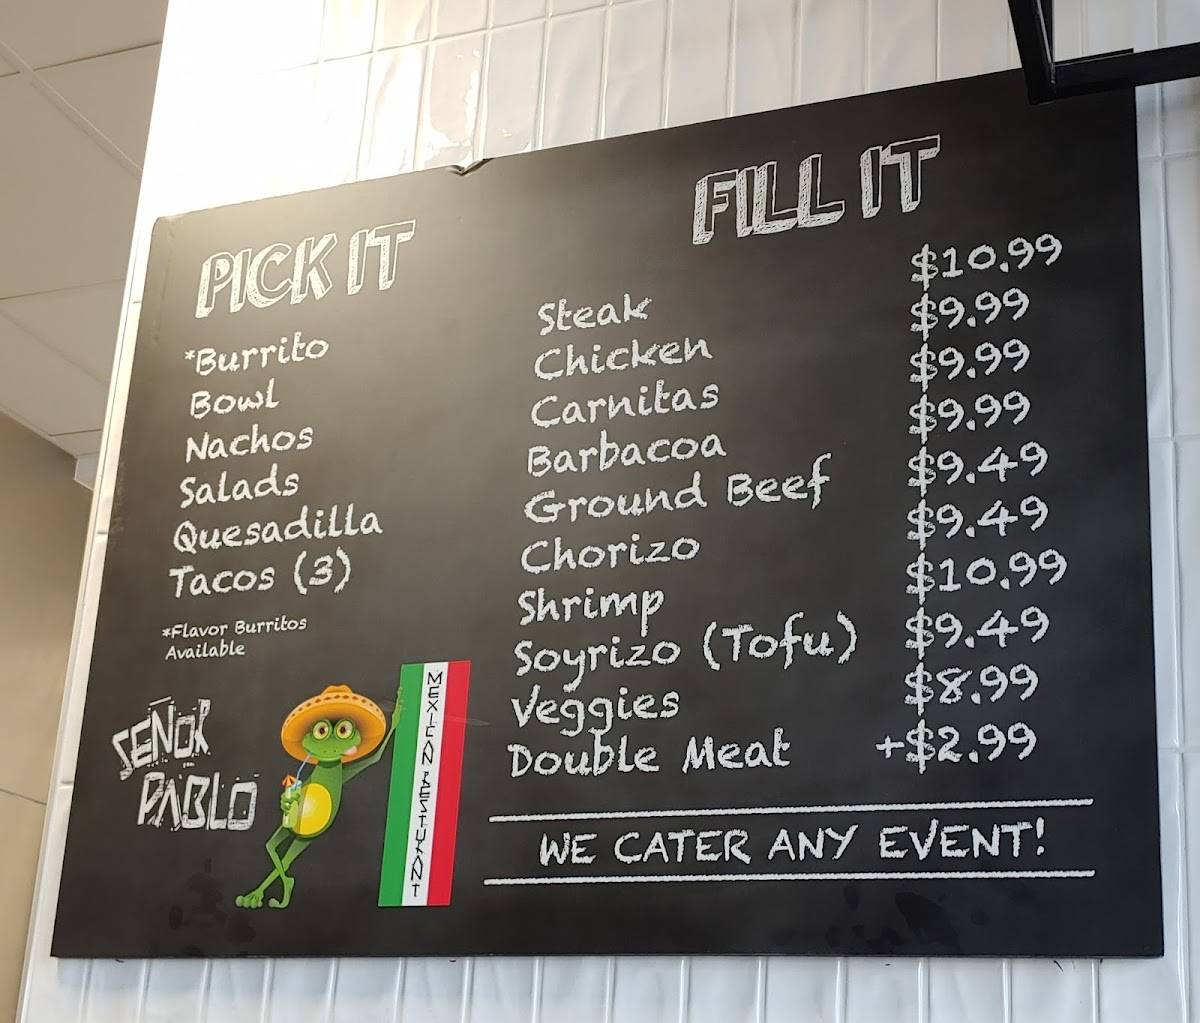 PICK IT
*Burrito
Bowl
Nachos
Salads
Quesadilla
Tacos (3)
*Flavor Burritos
Available
SEÑOR
PABLO
MEXICAN RESTURANT
FILL IT
Steak $10.99
Chicken $9.99
Carnitas $9.99
Barbacoa $9.99
Ground Beef $9.49
Chorizo $9.49
Shrimp $10.99
Soyrizo (Tofu) $9.49
Veggies $8.99
Double Meat +$2.99
WE CATER ANY EVENT!